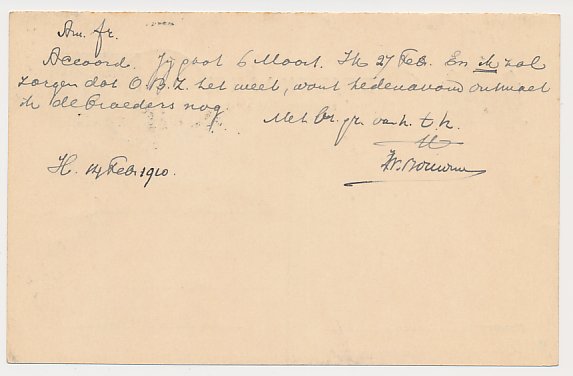 Am. fr.
Accoord. Jij gaat 6 Maart. Ik 27 Feb. En ik zal
zorgen dat O.B.Z. het weet, want hedenavond ontmoet
ik de broeders nog.
Met br. gr. van h. t. h.
H. 14 Feb. 1910.